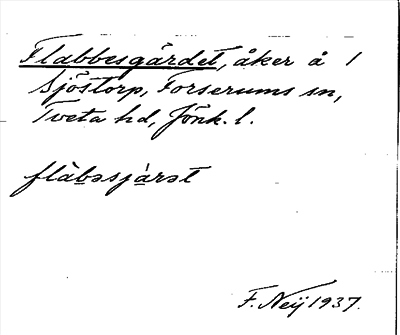 Flabbesgärdet, åker å 1
Sjöstorp, Forserums sn,
Tveta hd, Jönk. l.
flàbəsjàrət
F. Neij 1937.